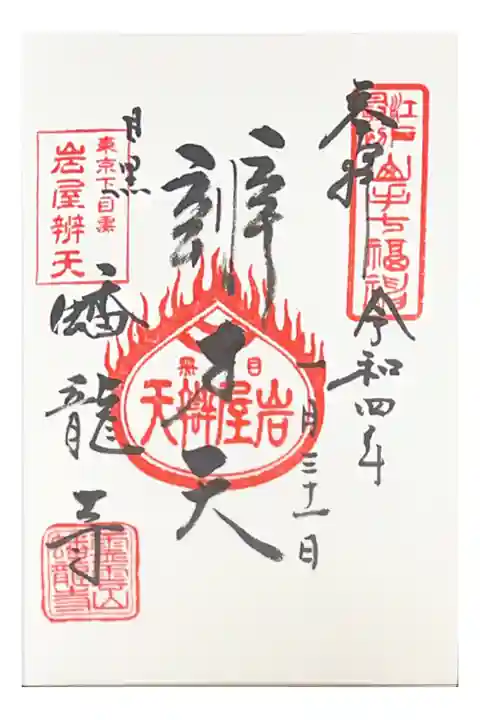 奉拝
令和四年
一月三十一日
辨才天
目黒
蟠龍寺
東京下目黒
岩屋辨天
目黒
岩屋辨天
江戸最初山手七福神
霊雲山蟠龍寺